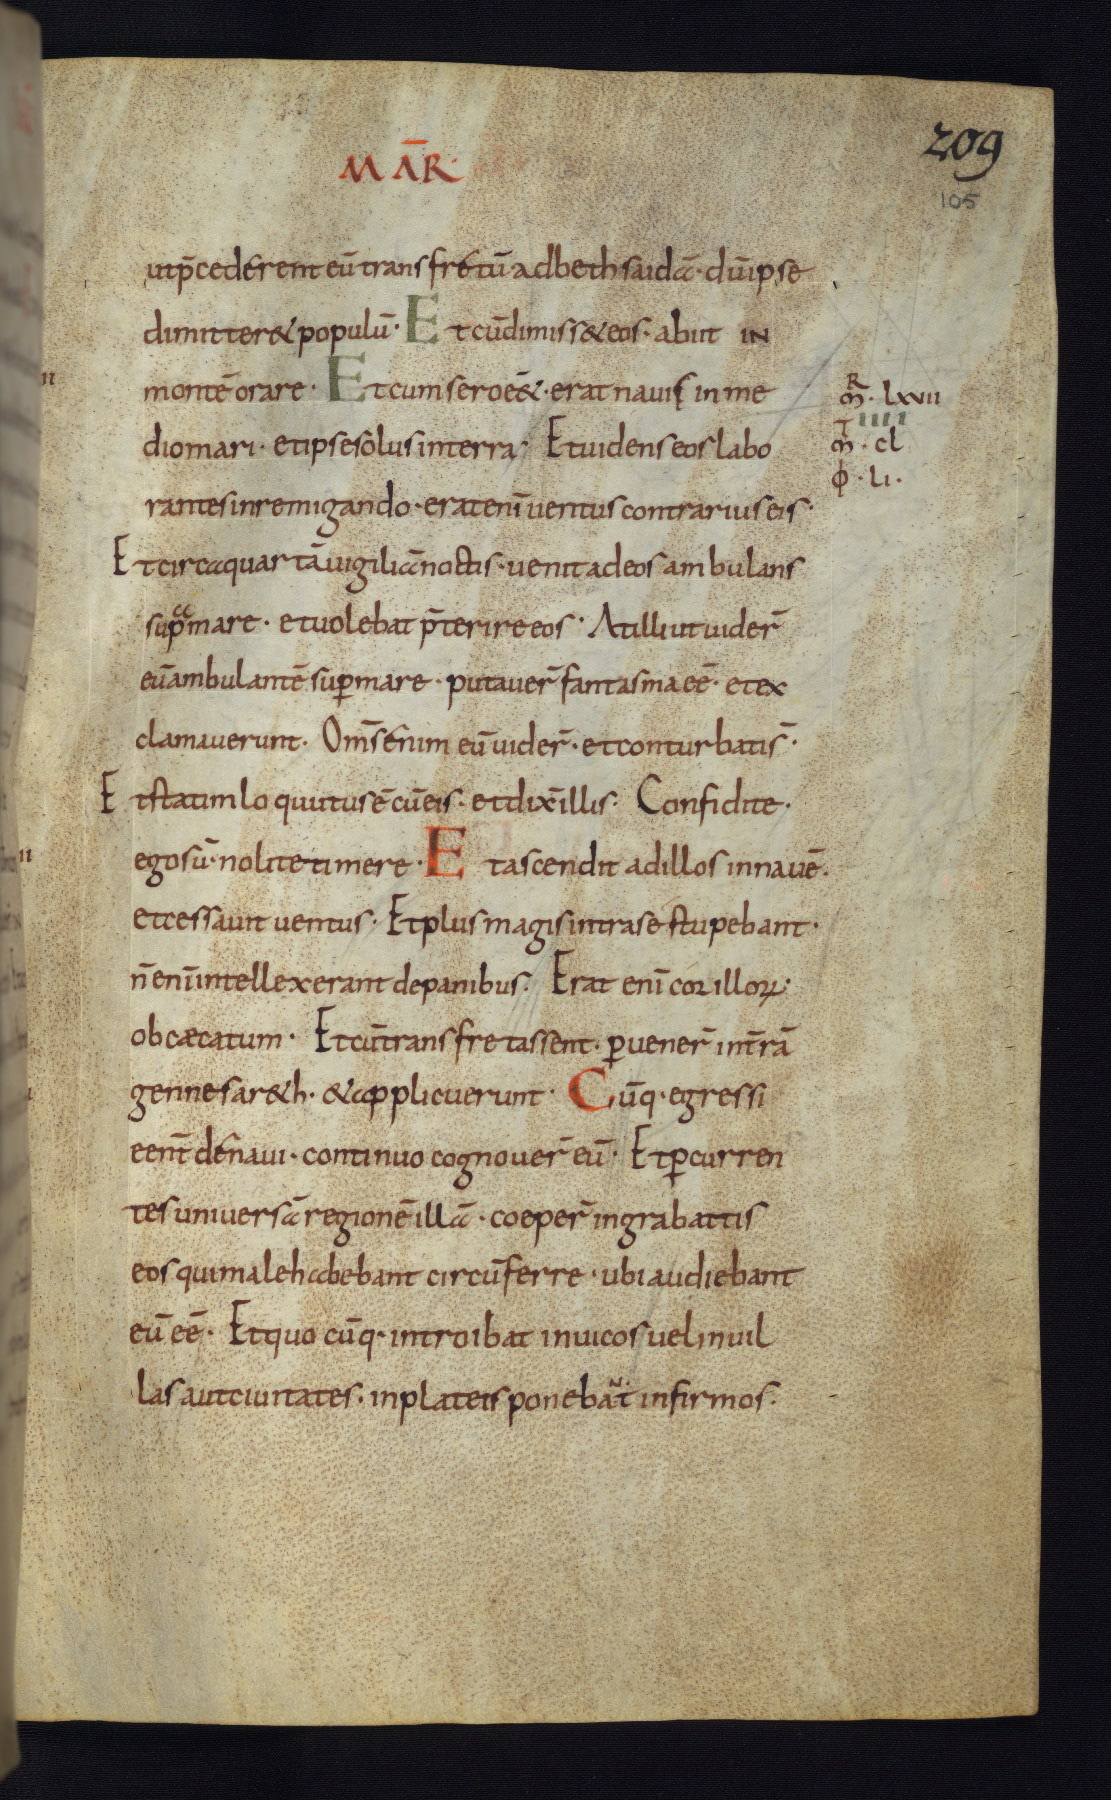 MAR̄·
209
105
utp̄cederent eū trans fretū adbethsaidā· dūipse
dimitter& populū· Et cū dimiss& eos· abiit in
montē orare· Et cum sero eē&· erat navis in me
dio mari· et ipse solus interra· Et uidens eos labo
rantes inremigando· erat enī uentus contrarius eis·
Et circa quartā uigiliā noctis· uenit ad eos ambulans
sup̱ mare· et uolebat p̄terire eos· At illi ut uider̄
eū ambulantē sup̱ mare· putauer̄ fantasma eē· et ex
clamauerunt· Om̄s enim eū uider̄· et conturbatis̄·
Et statim loquutus ē cū eis· et dix̄ illis· Confidite·
ego sū· nolite timere· Et ascendit ad illos in nauē·
et cessauit uentus· Et plus magis intra se stupebant·
n̄ enī intellexerant de panibus· Erat enī cor illoꝝ·
obcæcatum· Et cū transfretassent· ꝑuener̄ int̄rā
gennesar&h· & applicuerunt· Cūq· egressi
eent̄ de naui· continuo cognouer̄ eū· Et ꝑcurren
tes uniuersā regionē illā· coeper̄ in grabattis
eos qui male habebant circūferre· ubi audiebant
eū eē· Et quo cūq· introibat in uicos uel in uil
las aut ciuitates· in plateis ponebant infirmos·
R
m̄· lxvii
IIII
T
m̄· cl
φ· li·